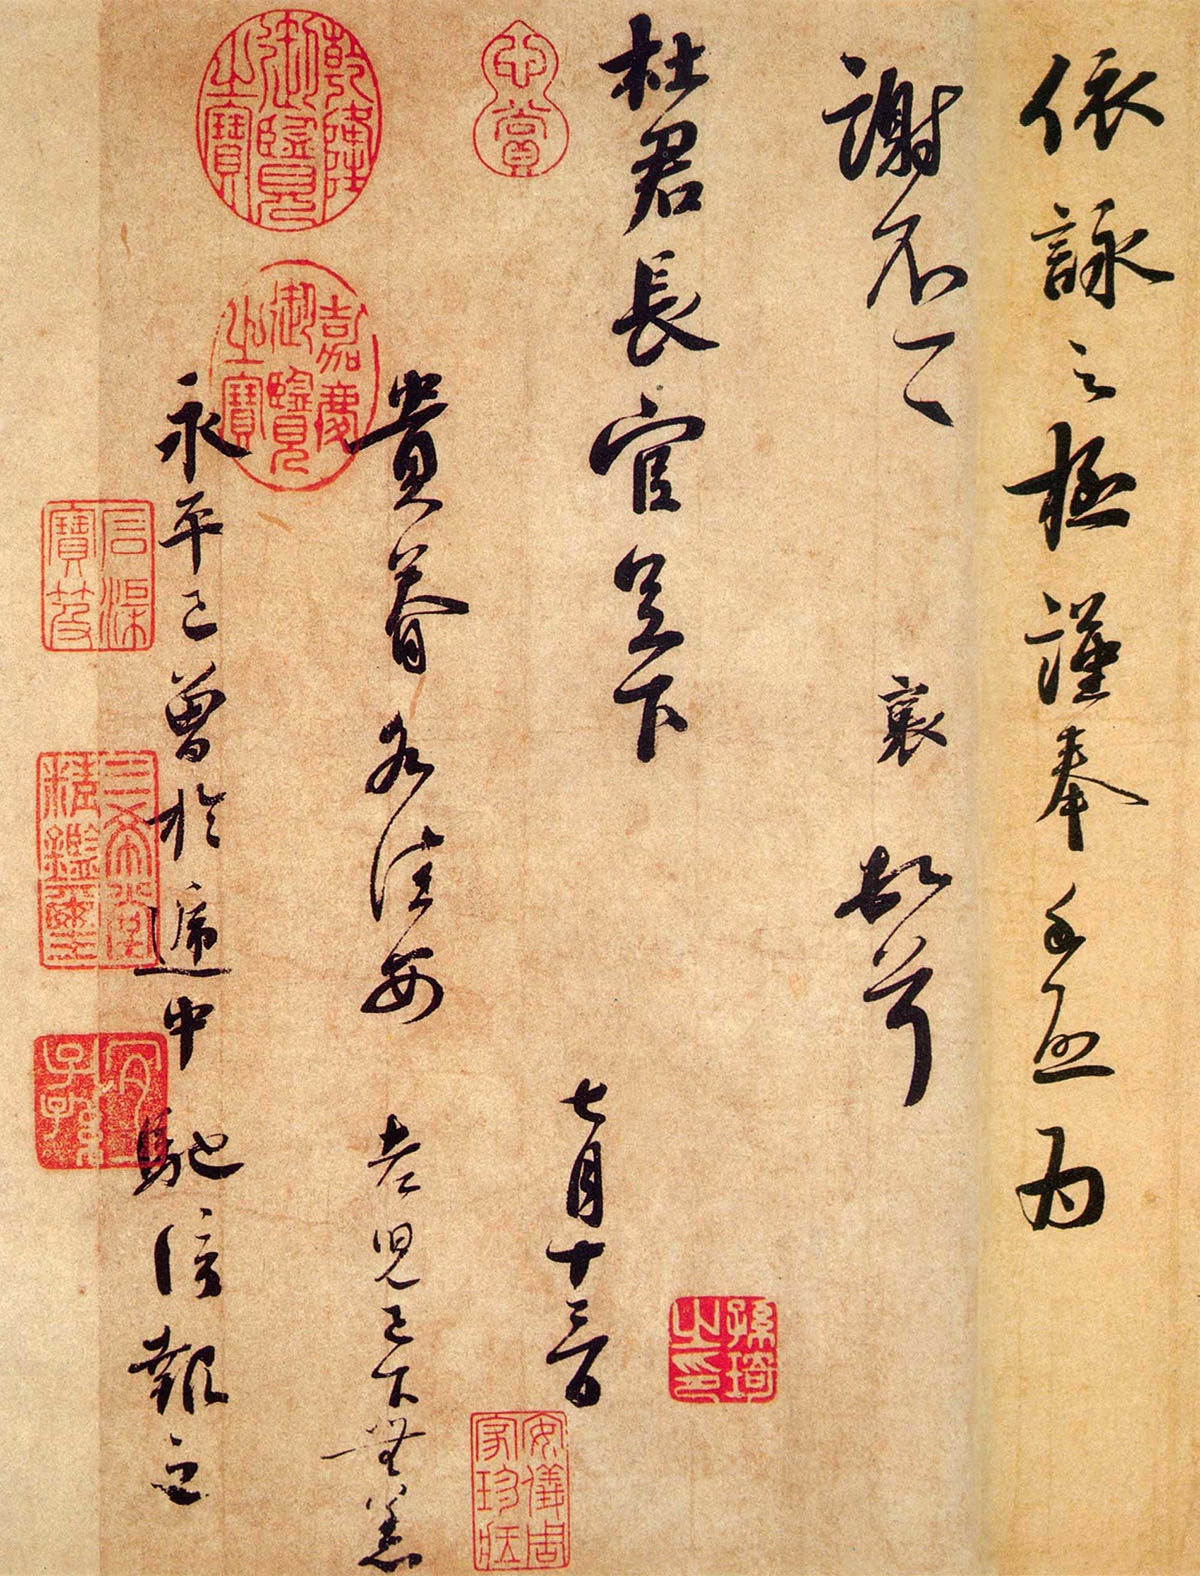 依詠之極謹奉手啟為
謝不一一 襄頓首
杜君長官足下
七月十三日
貴眷各佳安 老兒已下無恙
永平已曾於遞中馳信報之
孫琦之印
心賞
安儀周家珍藏
乾隆御覽之寶
嘉慶御覽之寶
石渠寶笈
三希堂精鑑璽
宜子孫